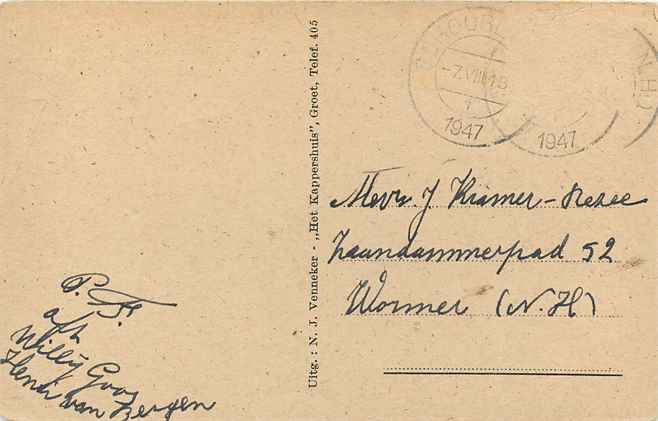 Uitg. : N. J. Venneker - „Het Kappershuis", Groet, Telef. 405
-7.VIII.
1947
N.H.)
1947
Mevr. J Kramer-
Zaandammerpad 52
Wormer (N.H)
P. F.
Willy Goos
Henk van Bergen